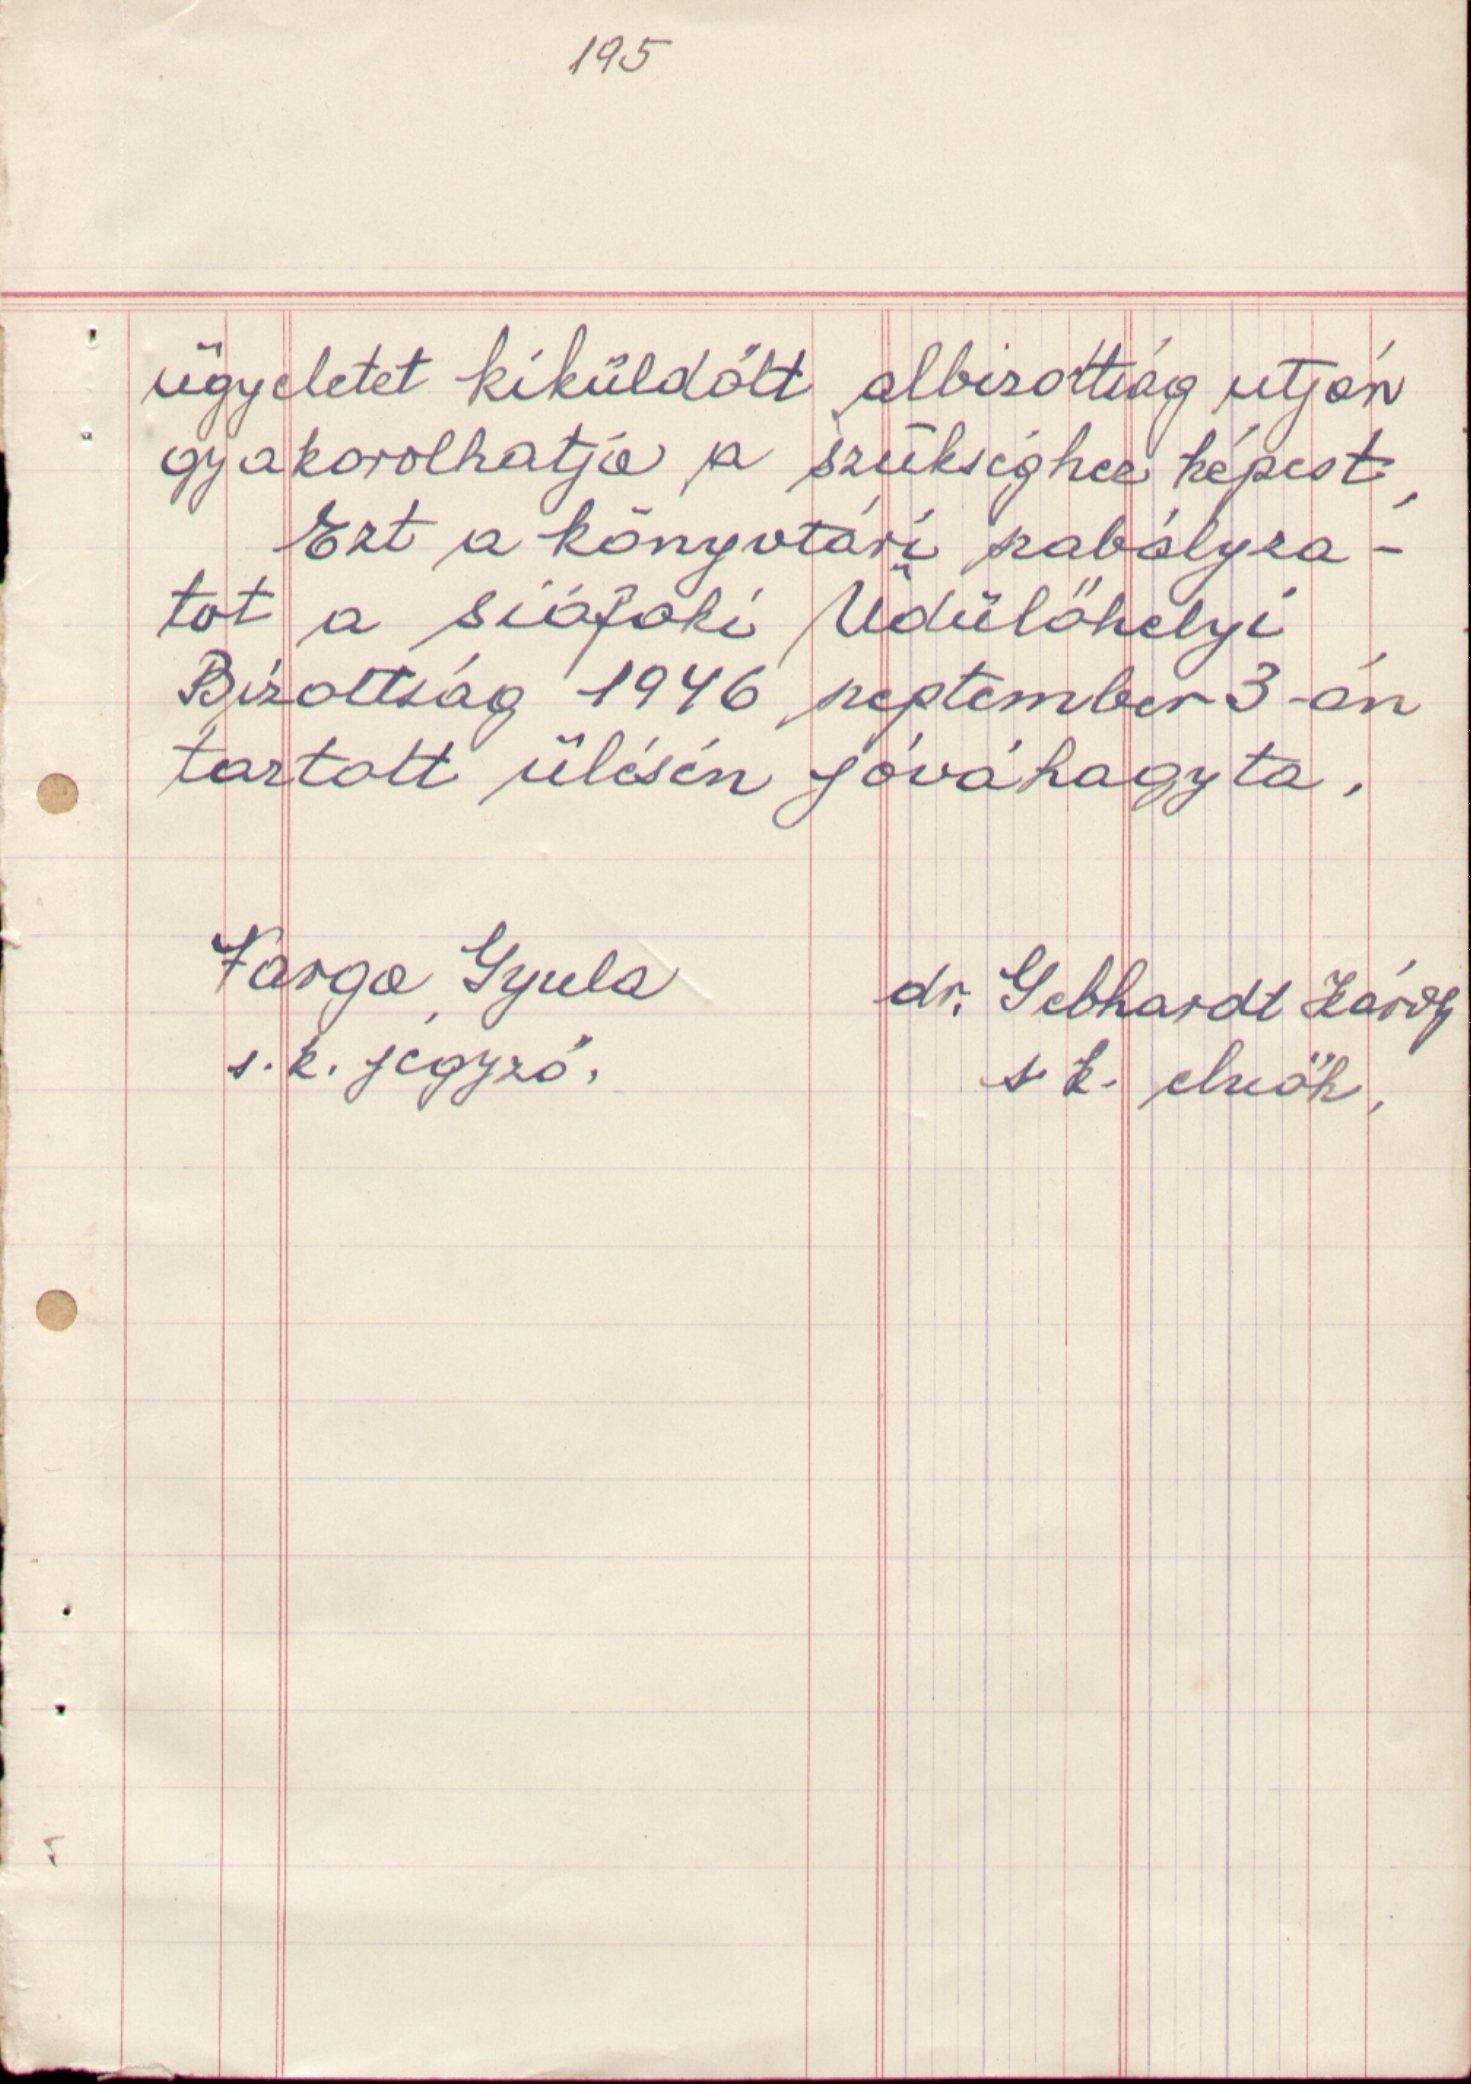 195
ügyeletet kiküldött albizottság utján
gyakorolhatja a szükséghez képest.
Ezt a könyvtári szabályza-
tot a siófoki Üdülőhelyi
Bizottság 1946 szeptember 3-án
tartott ülésén jóváhagyta.
Varga Gyula
dr. Gebhardt Károly
s. k. jegyző.
s k. elnök.